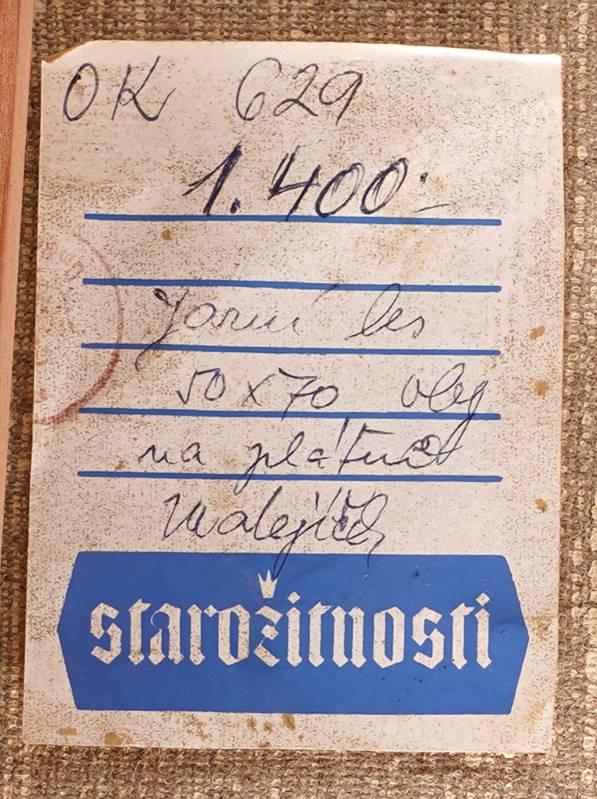 OK 629
1.400.-
Jarní les
50x70 olej
na plátně
starožitnosti